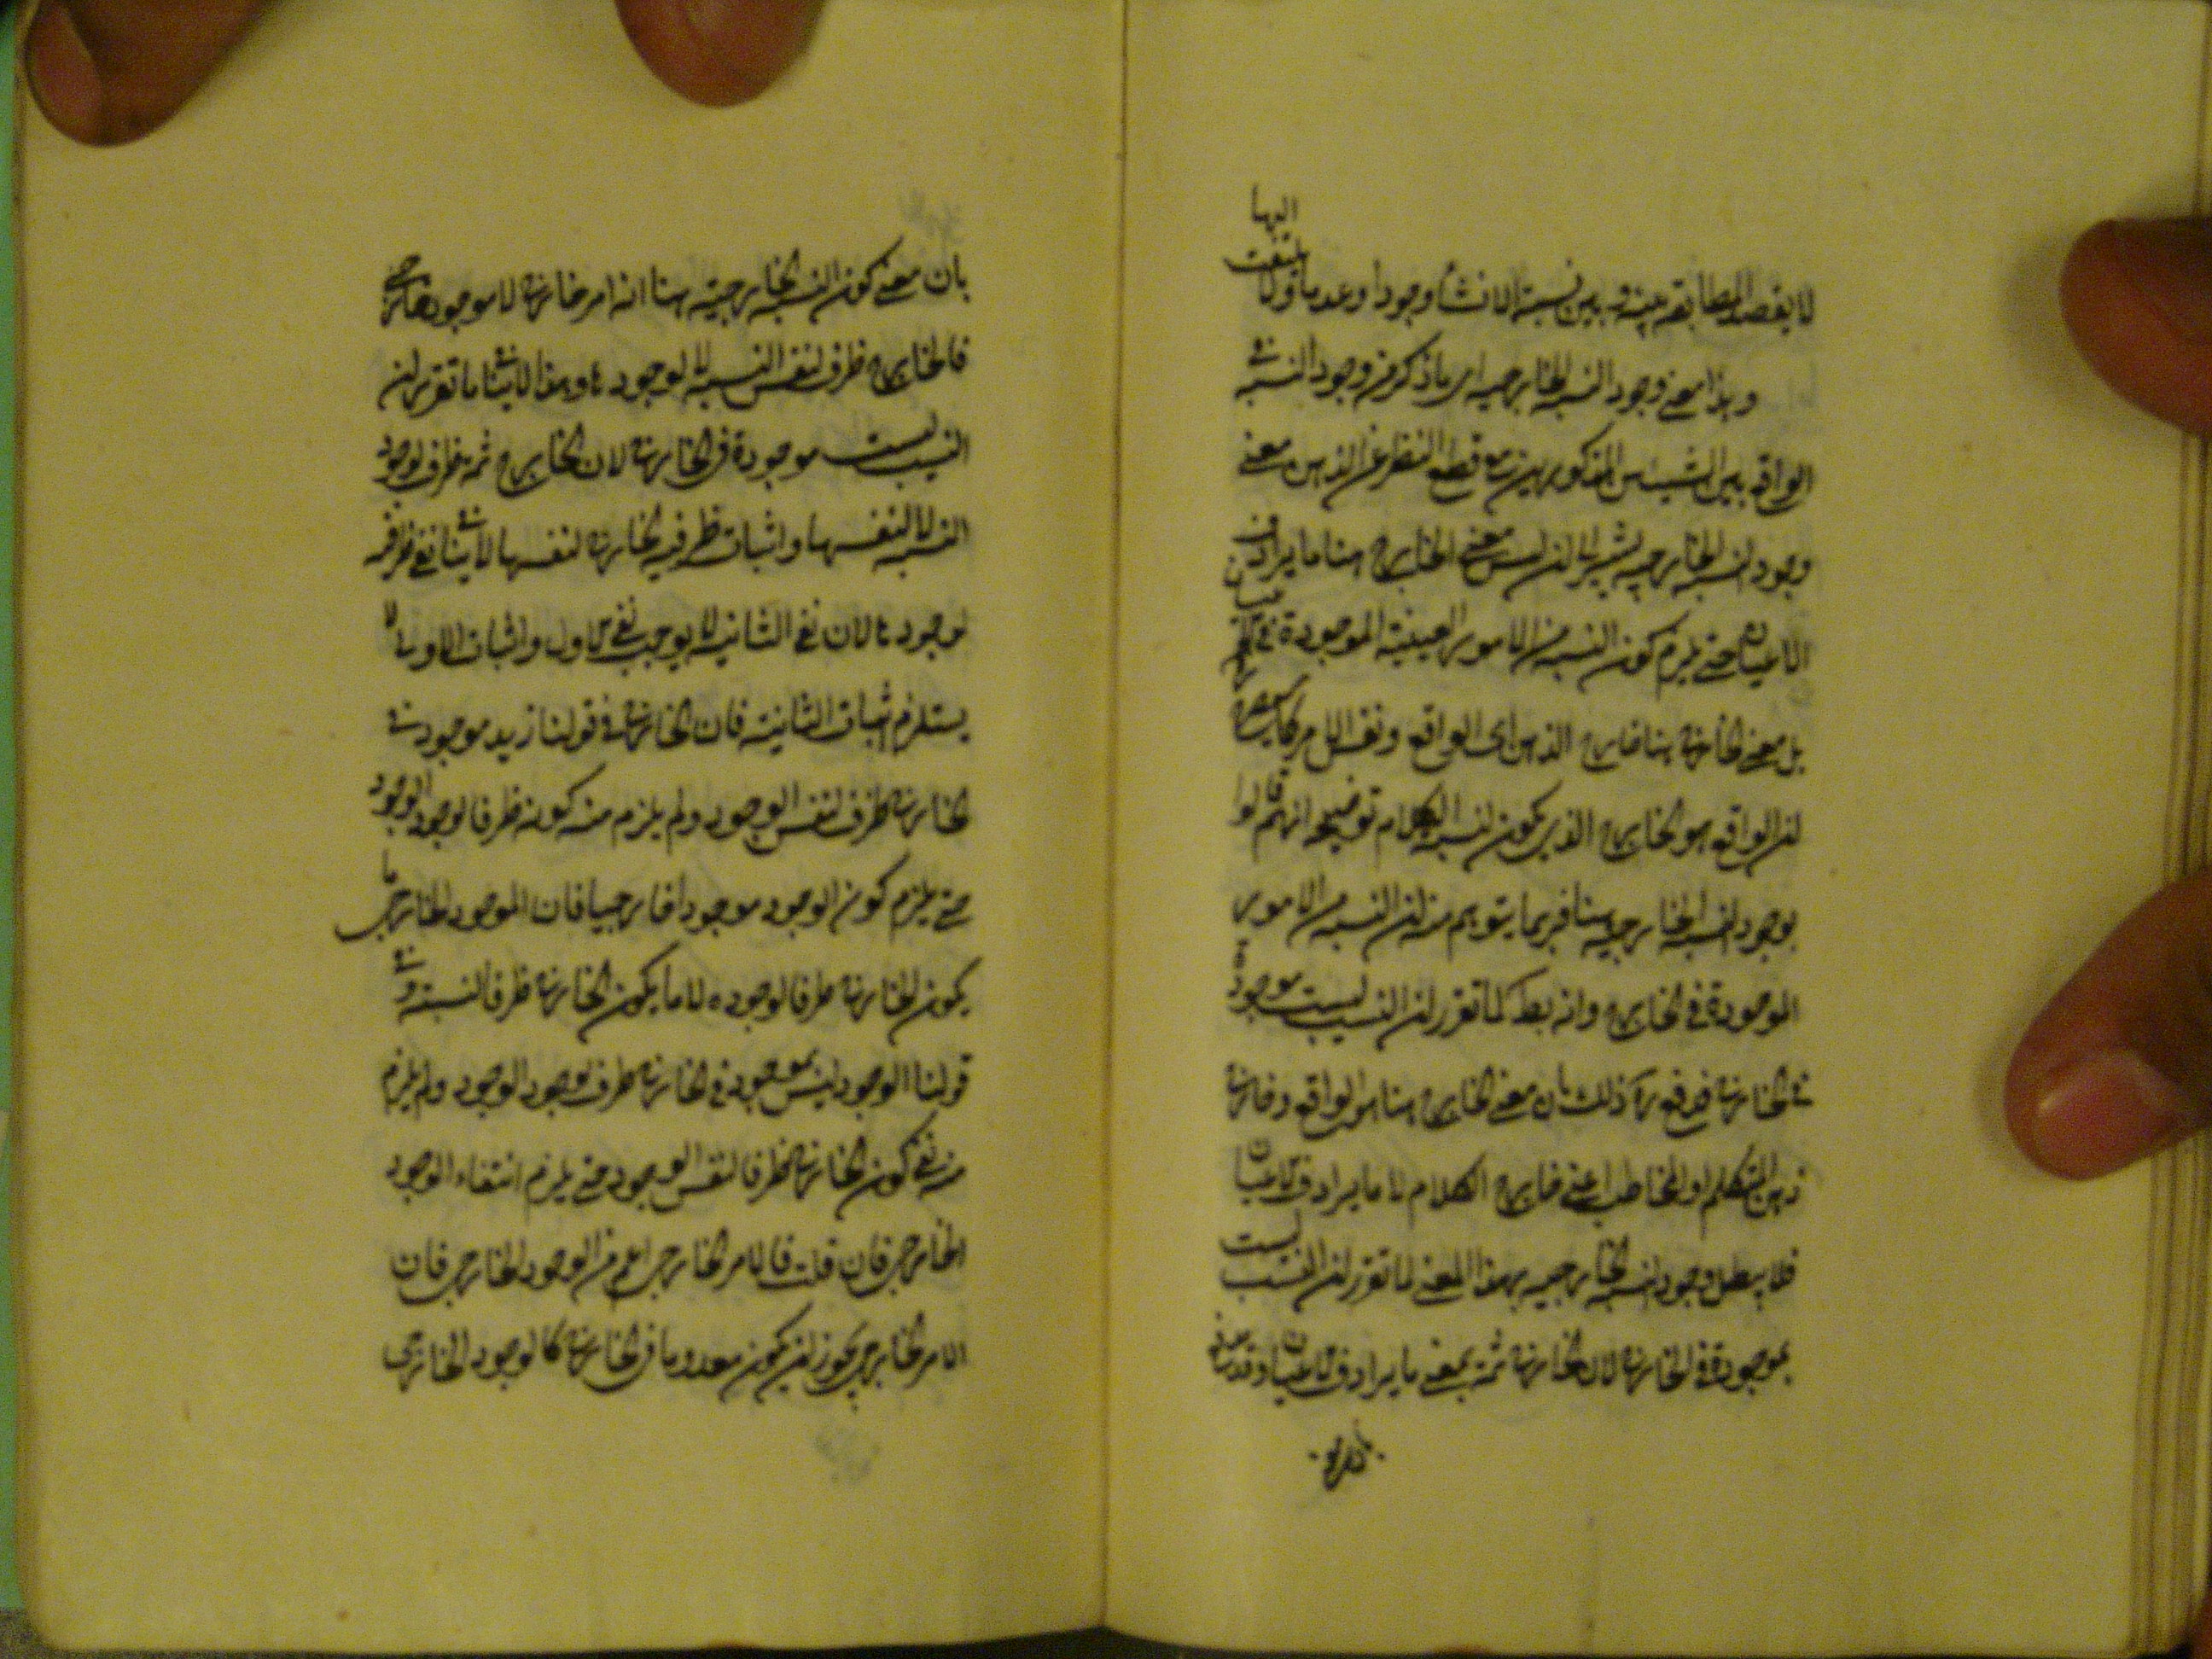 لا يقصد المطابقة بينه وبين نسبة الانشاء وجودا وعدما ولا يلتفت اليها
وهذا معنى وجود النسبة الخارجية اى ما ذكر من وجود النسبة
الواقعة بين الشيئين المذكورين مع قطع النظر عن الذهن معنى
وجود النسبة الخارجية يشير الى ان ليس معنى الخارج هنا ما يرادف
الاعيان حتى يلزم كون النسبة من الامور العينية الموجودة فى
بل معنى الخارج هنا خارج الذهن اى الواقع ونفس الامر
ان الواقع هو الخارج الذى يكون لنسبة الكلام توضيحه انهم قالوا
بوجود النسبة الخارجية هنا فربما يتوهم منه ان النسبة من الامور
الموجودة فى الخارج وانه بط لما تقرر ان النسب ليست موجودة
فى الخارج فدفع ذلك بان معنى الخارج هنا هو الواقع وخارج
ذهن المتكلم او المخاطب اعنى خارج الكلام لا ما يرادف الاعيان
فلا يبطل وجود النسبة الخارجية بهذا المعنى لما تقرر ان النسب ليست
بموجودة فى الخارج لان الخارج ثمة بمعنى ما يرادف الاعيان وقد
بان معنى كون النسبة خارجية هنا انه امر خارجى لا موجود خارجى
فالخارج ظرف لنفس النسبة لا لوجودها وهذا لا ينافى ما تقرر ان
النسب ليست موجودة فى الخارج لان الخارج ثمة ظرف لوجود
النسبة لا لنفسها واثبات ظرفية الخارج لنفسها لا ينافى نفى ظرفيته
لوجودها لان نفى الثانية لا يوجب نفى الاول واثبات الاولى لا
يستلزم اثبات الثانية فان الخارج فى قولنا زيد موجود فى
الخارج ظرف لنفس الوجود ولم يلزم منه كونه ظرفا لوجود الوجود
حتى يلزم كون الوجود موجودا خارجيا فان الموجود الخارجى ما
يكون الخارج ظرفا لوجوده لا ما يكون الخارج ظرفا لنفسه وفى
قولنا الوجود ليس بموجود فى الخارج ظرف لوجود الوجود ولم يلزم
منه نفى كون الخارج ظرفا لنفس الوجود حتى يلزم انتفاء الوجود
الخارجى فان قلت فالامر الخارجى اعم من الوجود الخارجى فان
الامر الخارجى يجوز ان يكون معدوما فى الخارج كالوجود الخارجى